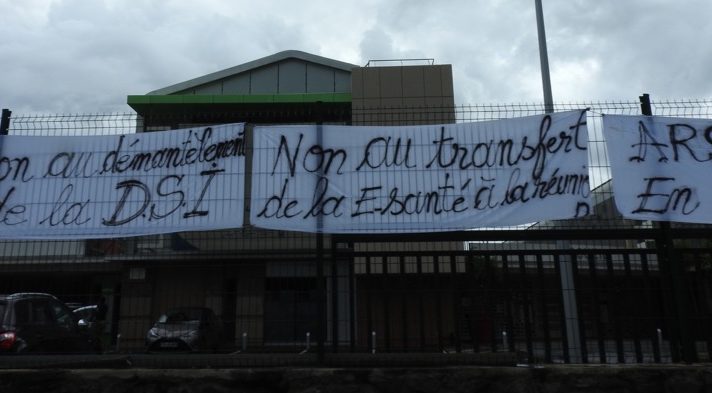 on au démantèlement
de la D.S.I
Non au transfert
de la E-santé à la réunio
ARS
En